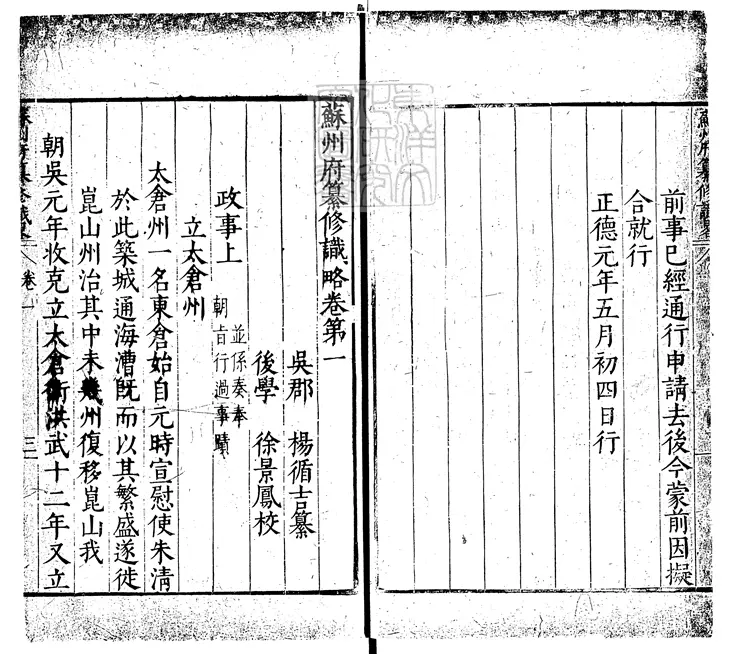 前事已經通行申請去後今蒙前因擬
合就行
正德元年五月初四日行
蘇州府纂修識略卷第一
吳郡 楊循吉纂
後學 徐景鳳校
政事上
並係奏奉
朝旨行過事蹟
立太倉州
太倉州一名東倉始自元時宣慰使朱清
於此築城通海漕旣而以其繁盛遂徙
崑山州治其中未幾州復移崑山我
朝吳元年收克立太倉衛洪武十二年又立
蘇州府纂修識略
卷一
三